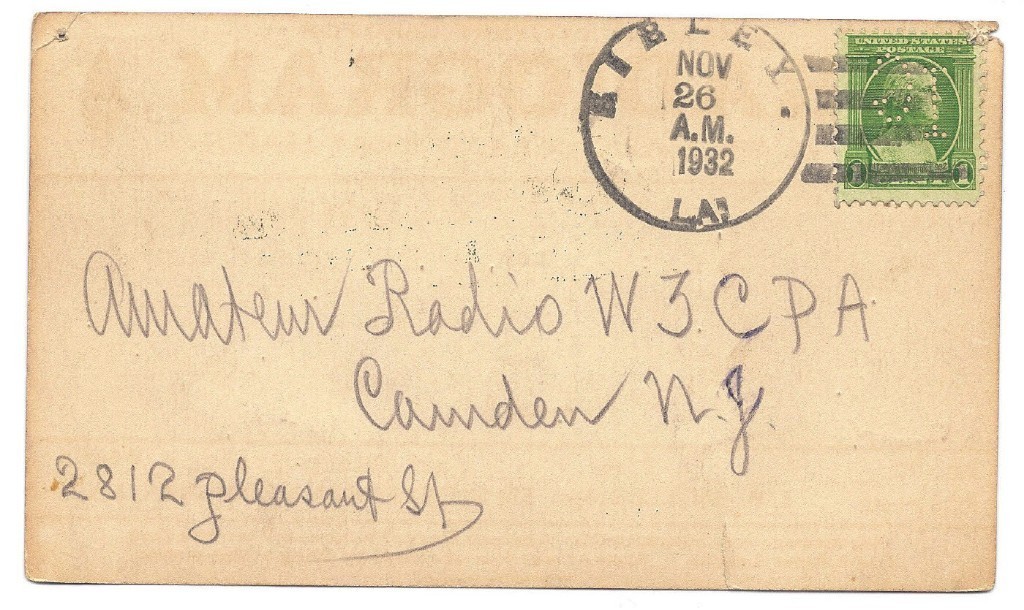 SIBLEY.
NOV
26
A.M.
1932
LA.
UNITED STATES
POSTAGE
1 1
Amateur Radio W3CPA
Camden N.J.
2812 pleasant St